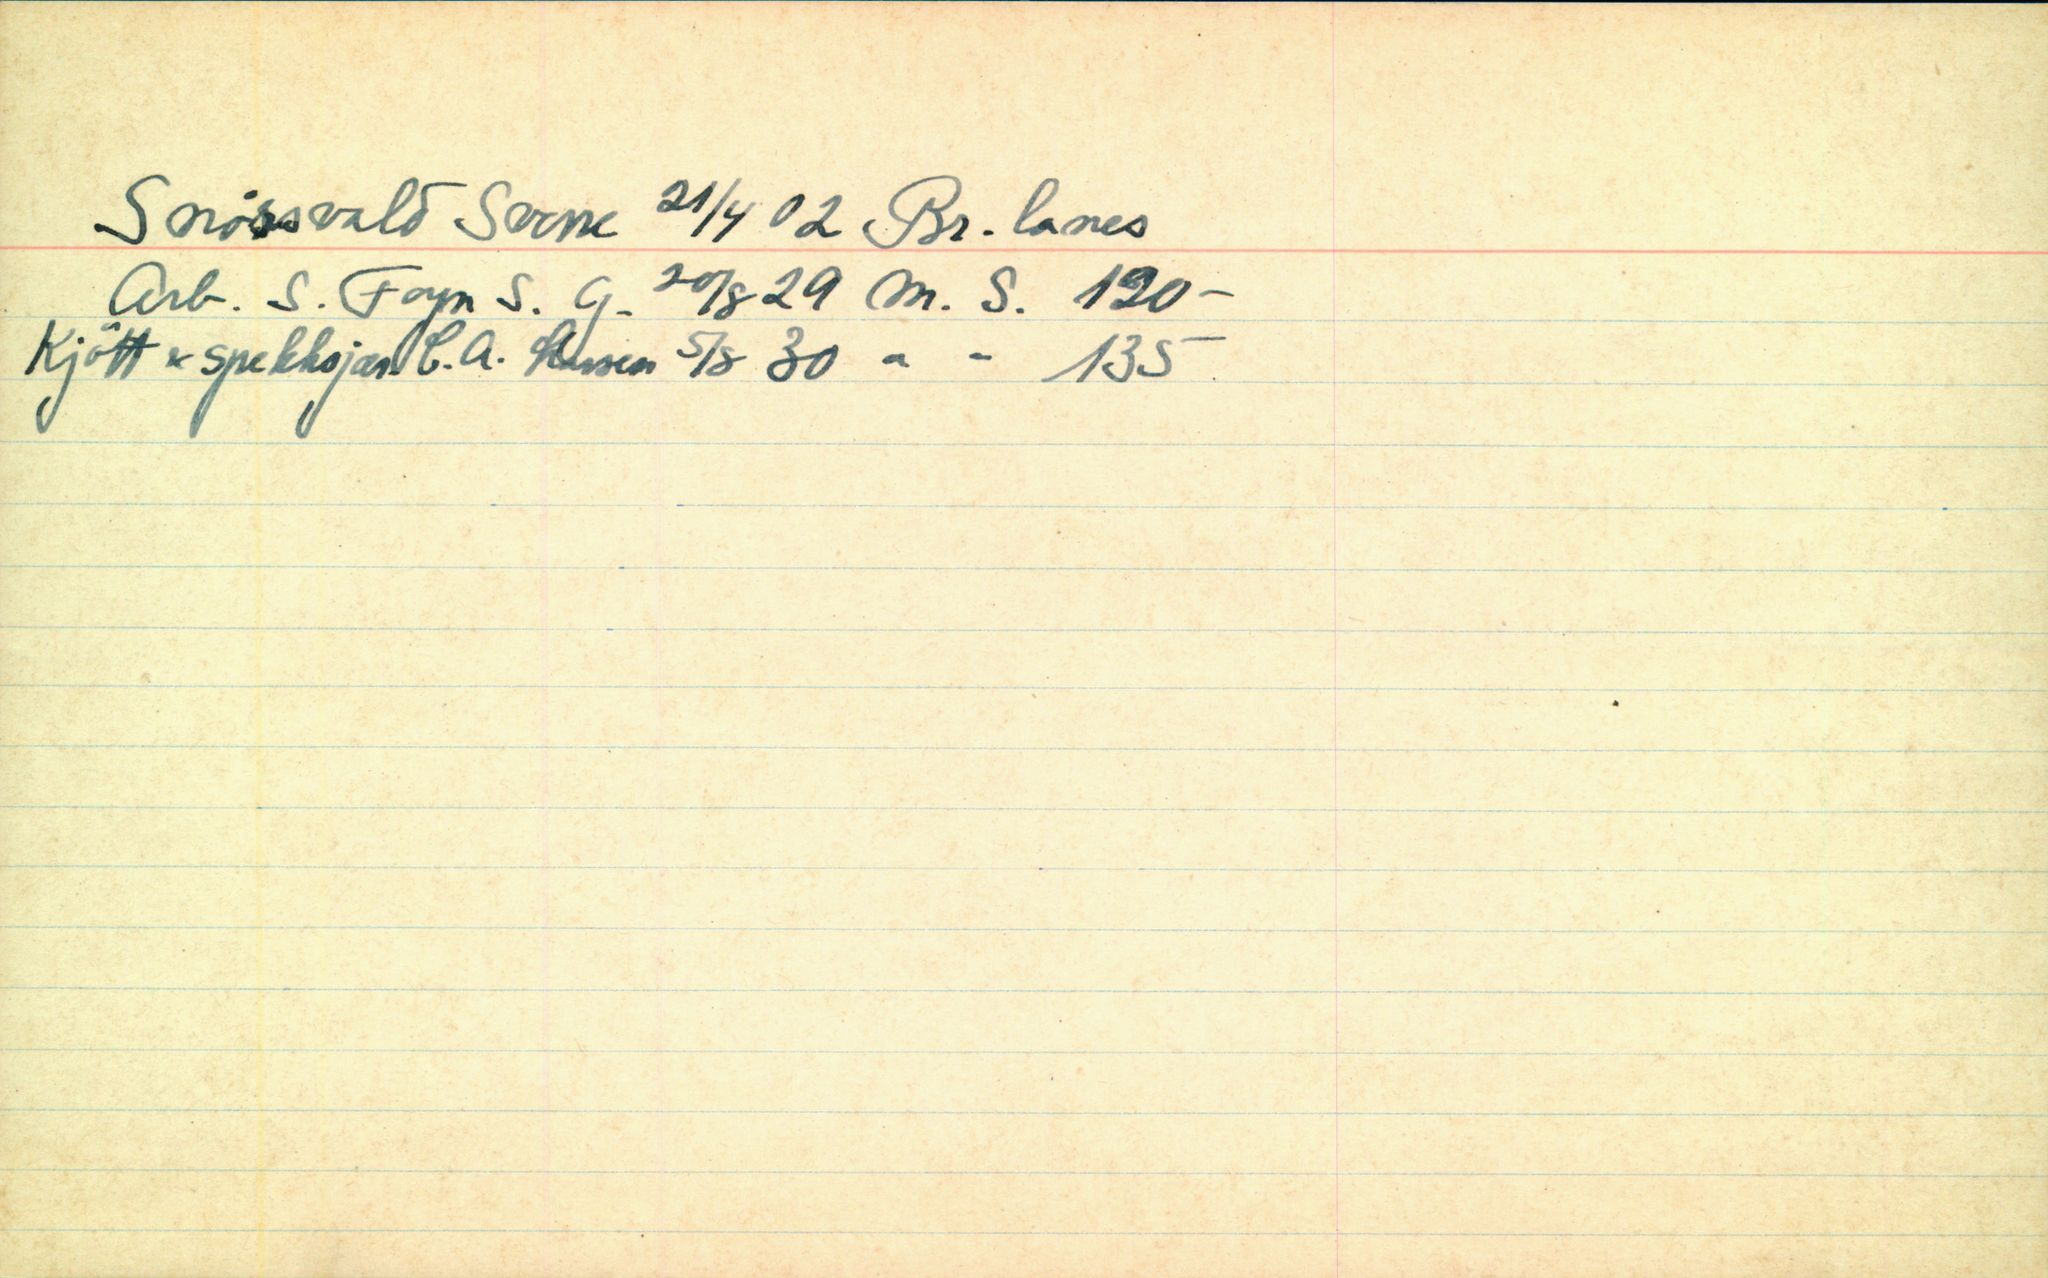 Snössvald Sverre 21/4 02 Br. lanes
Arb. S. Foyn S. G. 20/8 29 M. S. 120-
Kjött & spekksjær. C. A. Larsen 5/8 30 " - 135-